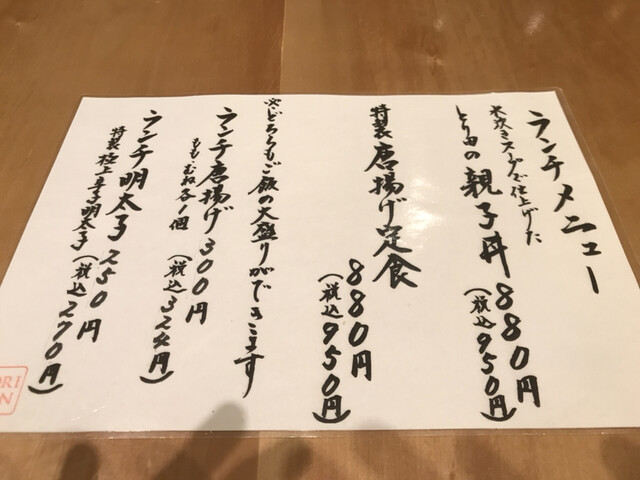 ランチメニュー
水炊きスープで仕上げた
とり田の親子丼 880円
(税込950円)
特製唐揚げ定食
880円
(税込950円)
※どちらもご飯の大盛りができます
ランチ唐揚げ 300円
もも むね各1個 (税込324円)
ランチ明太子 250円
特製 極上辛子明太子 (税込270円)
ORI
N